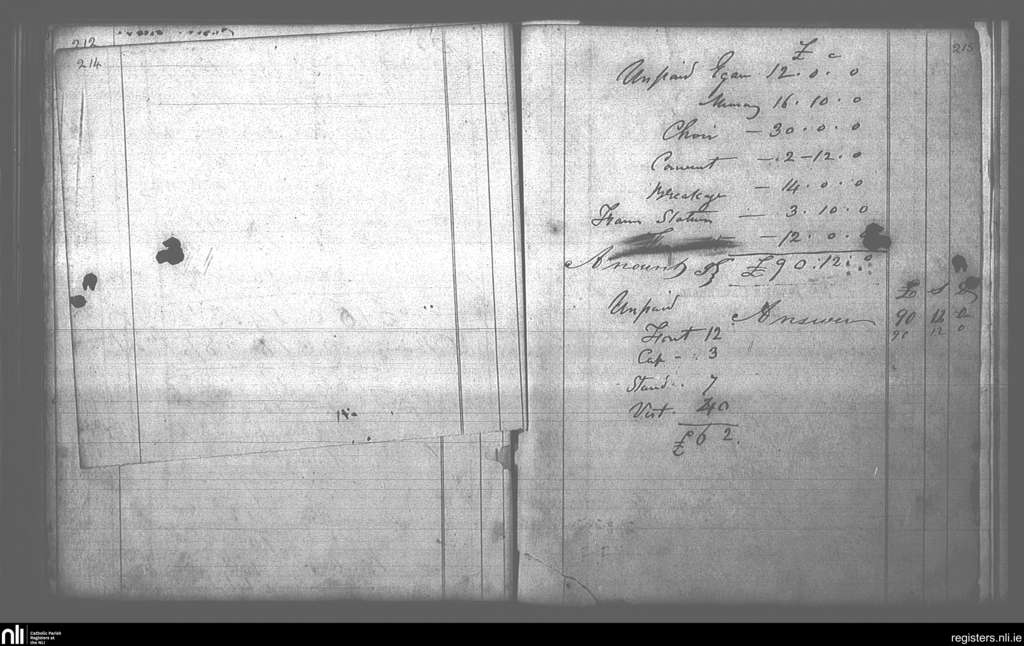 212
214
215
£ c
Unpaid Egan 12 . 0 . 0
Murray 16 . 10 . 0
Choir — 30 . 0 . 0
Convent — . 2 — 12 . 0
Breakage — 14 . 0 . 0
Station — 3 . 10 . 0
— 12 . 0 .
Amount of £ 90 . 12 . 0
£ s d
Unpaid Answer 90 12 0
90 12 0
Front 12
Cap - 3
Stand . . 7
Vest - 40
£ 6 2 .
nli Catholic Parish
Registers at
the NLI
registers.nli.ie